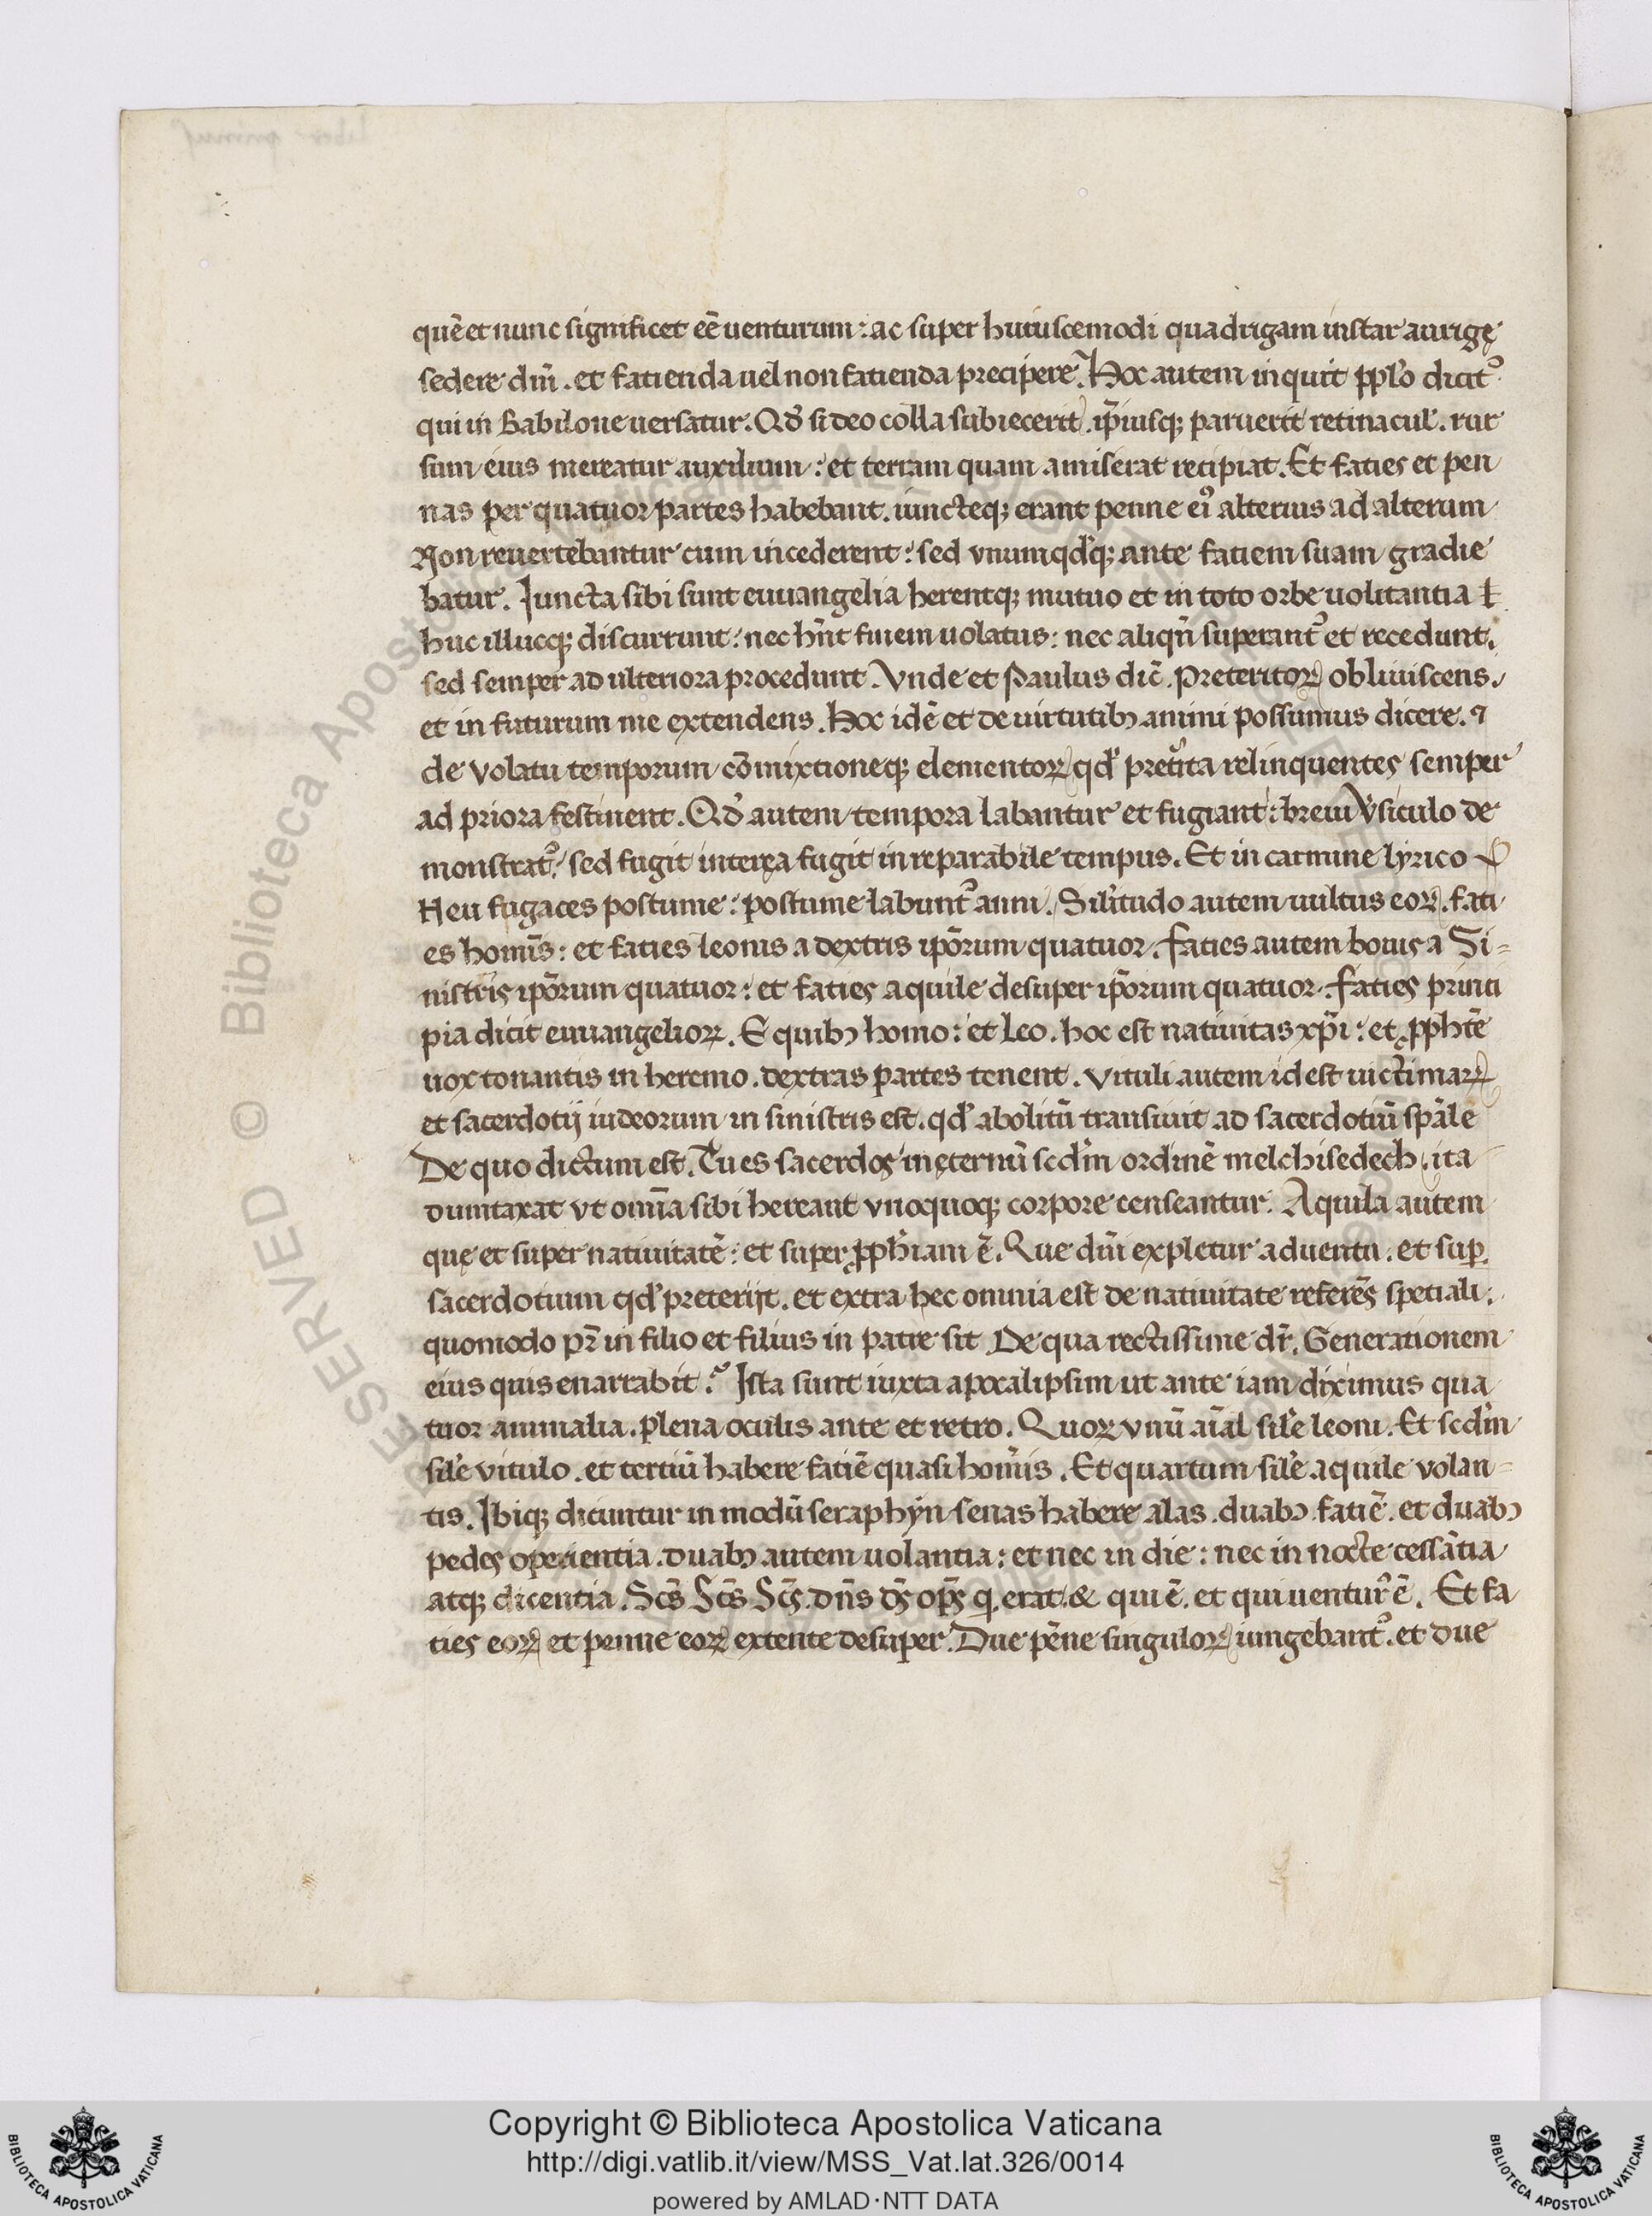 quē et nunc significet eē uenturum : ac super huiuscemodi quadrigam instar aurigę
sedere dn̄m . et fatienda uel non fatienda precipere . Hoc autem inquit pplo dicit᷒
qui in Babilone uersatur . Qd̓ si deo colla subiecerit . ip̄iusq; paruerit retinacul . rur
sum eius mereatur auxilium : et terram quam amiserat recipiat . Et faties et pen
nas per quatuor partes habebant . iuncteq; erant penne eoꝝ alterius ad alterum
Non reuertebantur cum incederent : sed vnumqd̓q; ante fatiem suam gradie
batur . Iuncta sibi sunt euuangelia herentq; mutuo et in toto orbe uolitantia
huc illucq; discurrunt : nec hn̄t finem uolatus : nec aliqn̄ superant᷒ et recedunt ,
sed semper ad ulteriora procedunt . Vnde et Paulus dic̄ . Preteritoꝝ obliuiscens .
et in futurum me extendens . Hoc idē et de uirtutibꝫ animi possumus dicere . ⁊
de volatu temporum cōmixtioneq; elementoꝝ qd̓ pret᷒ita relinquentes semper
ad priora festinent . Qd̓ autem tempora labantur et fugiant : breui v᷒siculo de
monstrat᷒ : sed fugit interea fugit inreparabile tempus . Et in carmine lyrico
Heu fugaces postume : postume labunt᷒ anni . Sil̓itudo autem uultus eoꝝ . fati
es homīs : et faties leonis a dextris ip̄orum quatuor . faties autem bouis a Si=
nistris ip̄orum quatuor : et faties aquile desuper ip̄orum quatuor . faties princi
pia dicit euuangelioꝝ . E quibꝫ homo : et leo . hoc est natiuitas xp̄i : et pphte
uox tonantis in heremo . dextras partes tenent . Vituli autem id est uictimaꝝ
et sacerdotij iudeorum in sinistris est . qd̓ abolitū transiuit ad sacerdotiū spāle
De quo dictum est . Tu es sacerdos in ęternū scdm̄ ordinē melchisedech . ita
dumtaxat vt omīa sibi hereant vnoquoq; corpore censeantur . Aquila autem
quę et super natiuitatē : et super pphiam ē . Que dn̄i expletur aduentu . et suꝑ
sacerdotium qd̓ preterijt . et extra hec omnia est de natiuitate referēs spetiali :
quomodo pr̄ in filio et filius in patre sit De qua rectissime dr̄ . Generationem
eius quis enarrabit ? Ista sunt iuxta apocalipsim ut ante iam diximus qua
tuor animalia . plena oculis ante et retro . Quoꝝ vnū aīal sil̓e leoni . Et scdm̄
sil̓e vitulo . et tertiū habere fatiē quasi homīs . Et quartum sil̓e aquile volan=
tis . Ibiq; dicuntur in modū seraphyn senas habere alas . duabꝫ fatiē . et duabꝫ
pedes operientia . duabꝫ autem uolantia : et nec in die : nec in nocte cessātia
atq; dicentia . Sc̄s Sc̄s Sc̄s . dn̄s ds̄ op̄s q erat . & qui ē . et qui uentur᷒ ē . Et fa
ties eoꝝ et penne eoꝝ extente desuper . Due pēne singuloꝝ iungebant᷒ . et due
Copyright © Biblioteca Apostolica Vaticana
http://digi.vatlib.it/view/MSS_Vat.lat.326/0014
powered by AMLAD·NTT DATA
BIBLIOTECA APOSTOLICA VATICANA
BIBLIOTECA APOSTOLICA VATICANA